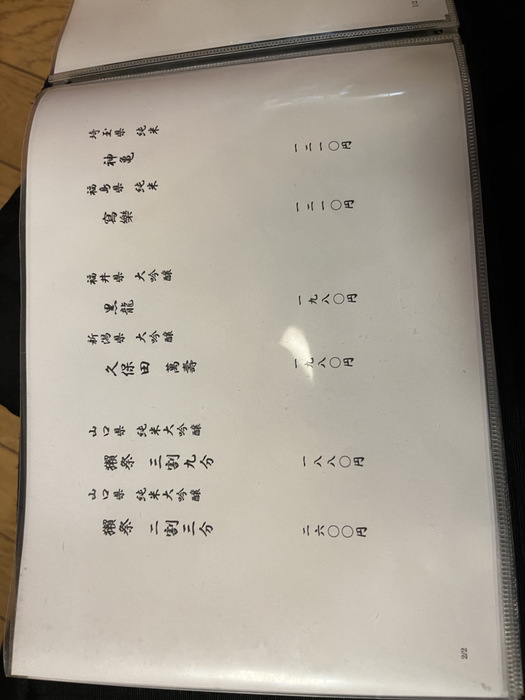 1/2
埼玉県 純米
神亀 一二一〇円
福島県 純米
寫樂 一二一〇円
福井県 大吟醸
黒龍 一九八〇円
新潟県 大吟醸
久保田 萬壽 一九八〇円
山口県 純米大吟醸
獺祭 三割九分 一八八〇円
山口県 純米大吟醸
獺祭 二割三分 二六〇〇円
2/2